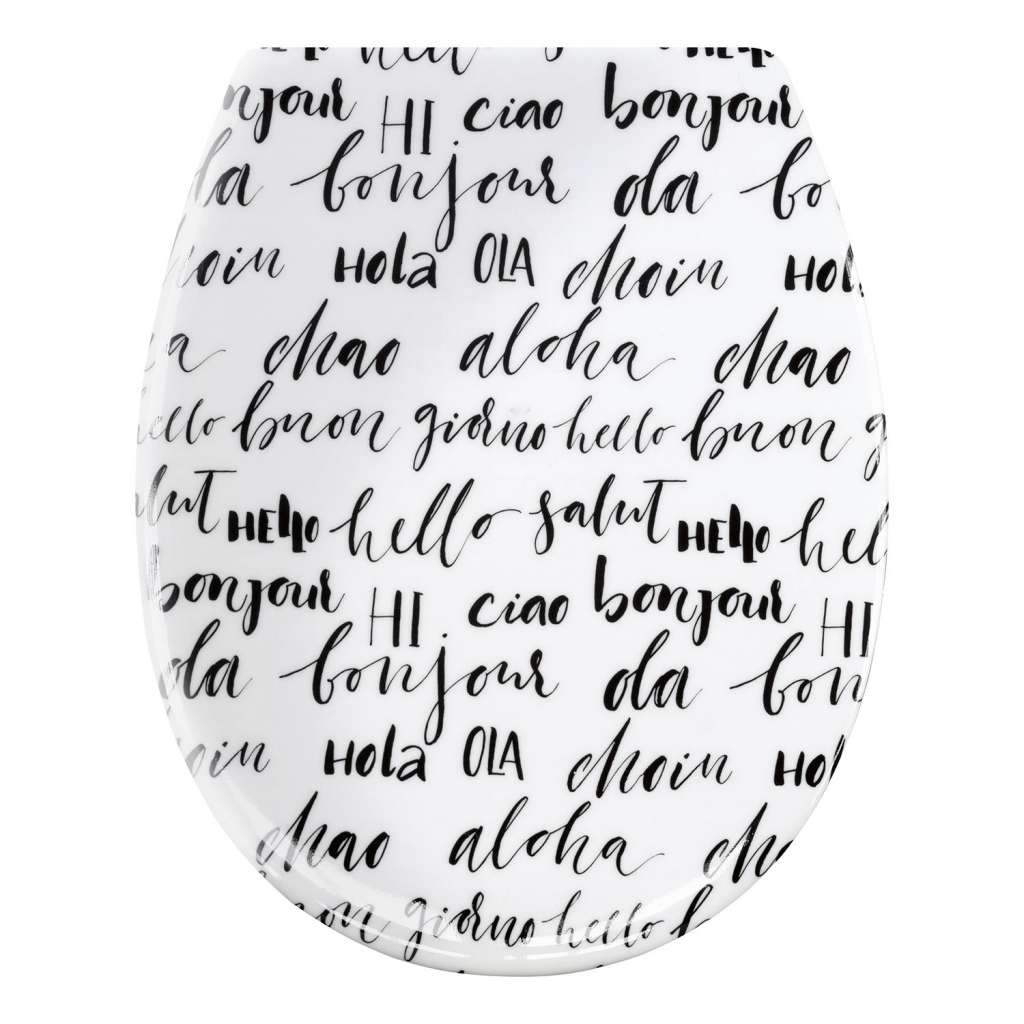 HELLO
bonjour HI ciao bonjour
ola bonjour ola bo
choin Hola OLA choin Hol
ca chao aloha chao
hello buon giorno hello buon g
salut HELLO hello salut HELLO hel
bonjour HI ciao bonjour HI
ola bonjour ola bon
choin Hola OLA choin Hol
chao aloha cha
buon giorno hello b